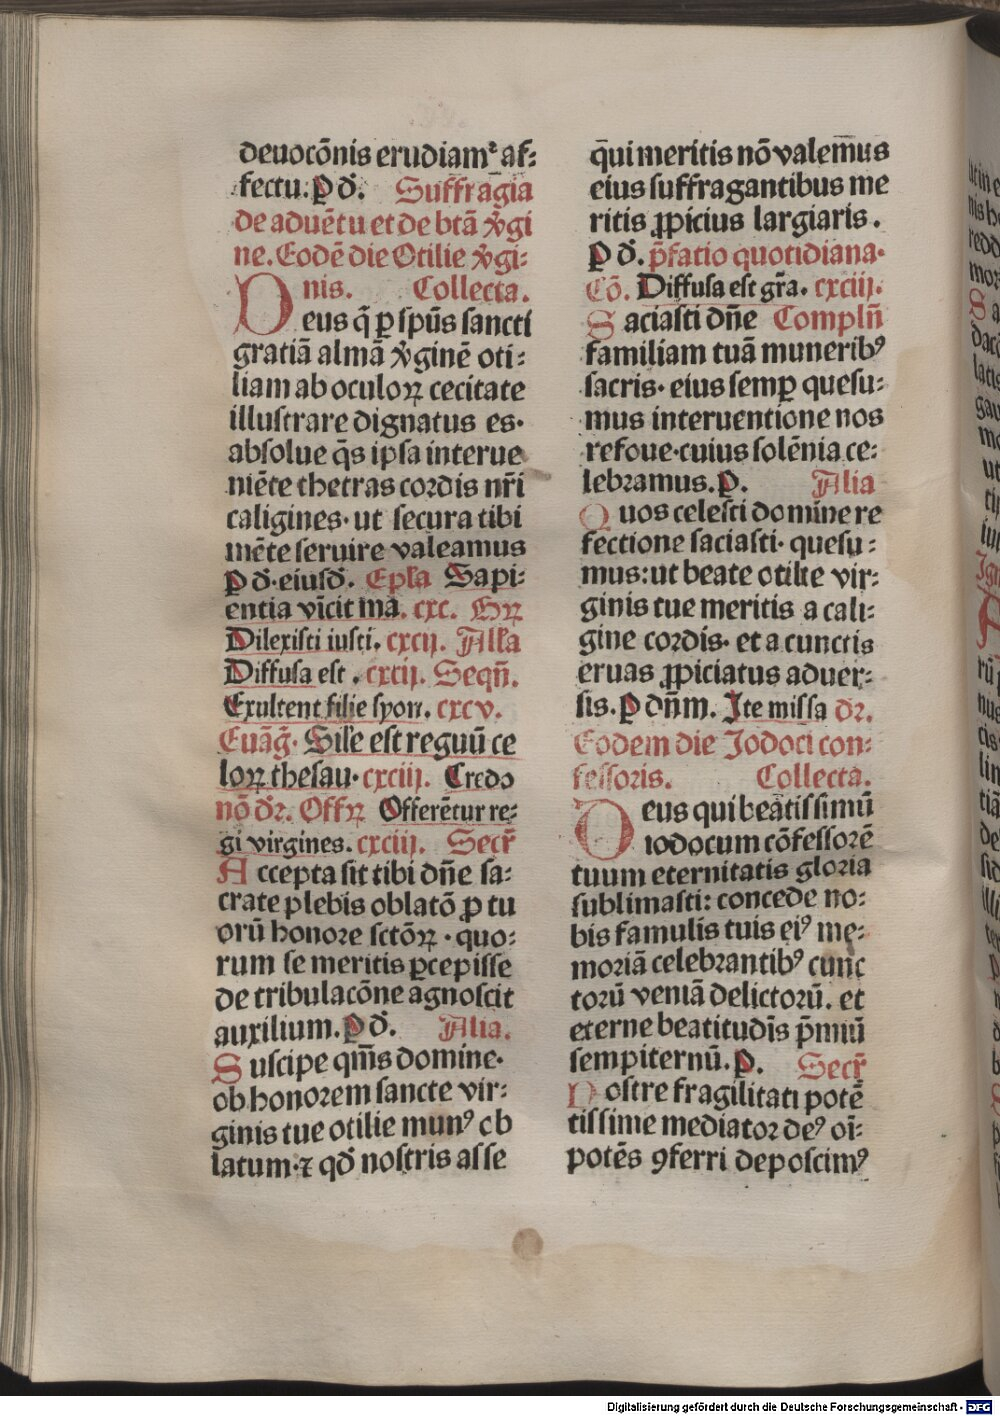 deuocōnis erudiamꝰ af-
fectu. P d. Suffragia
de aduētu et de btā v̄gi
ne. Eodē die Otilie v̄gi-
nis. Collecta.
Deus q̄ ꝑ spūs sancti
gratiā almā v̄ginē oti-
liam ab oculoꝝ cecitate
illustrare dignatus es.
absolue q̄s ipsa interue
niēte thetras cordis nr̄i
caligines. ut secura tibi
mēte seruire valeamus
P d. eiusd. Epl̄a Sapi-
entia vīcit ma. cxc. Gꝝ
Dilexisti iusti. cxcij. Alla
Diffusa est. cxcij. Seqn̄.
Exultent filie syon. cxcv.
Euāg̃. Sil̄e est regnū ce
loꝝ thesau. cxciij. Credo
nō dr̄. Offꝝ Offerētur re-
gi virgines. cxciij. Secr̄
Accepta sit tibi dn̄e sa-
crate plebis oblatō ꝓ tu
orū honore sctōꝝ. quo-
rum se meritis ꝑcepisse
de tribulacōne agnoscit
auxilium. P d. Alia.
Suscipe qm̄s domine.
ob honorem sancte vir-
ginis tue otilie munꝰ ob
latum. ⁊ qd̄ nostris asse
q̄ui meritis nō valemus
eius suffragantibus me
ritis ꝓpicius largiaris.
P d. p̄fatio quotidiana.
Cō. Diffusa est gr̄a. cxciij.
Saciasti dn̄e Compln̄
familiam tuā muneribꝰ
sacris. eius semꝑ quesu-
mus interuentione nos
refoue. cuius solēnia ce-
lebramus. P. Alia
Quos celesti domine re
fectione saciasti. quesu-
mus: ut beate otilie vir-
ginis tue meritis a cali-
gine cordis. et a cunctis
eruas ꝓpiciatus aduer-
sis. P dn̄m. Ite missa dr̄.
Eodem die Jodoci con-
fessoris. Collecta.
Deus qui beatissimū
iodocum cōfessorē
tuum eternitatis gloria
sublimasti: concede no-
bis famulis tuis eiꝰ me-
moriā celebrantibꝰ cunc
torū veniā delictorū. et
eterne beatitudīs p̄miū
sempiternū. P. Secr̄
Nostre fragilitati potē
tissime mediator deꝰ oī-
potēs ꝯferri deposcimꝰ
Digitalisierung gefördert durch die Deutsche Forschungsgemeinschaft - DFG